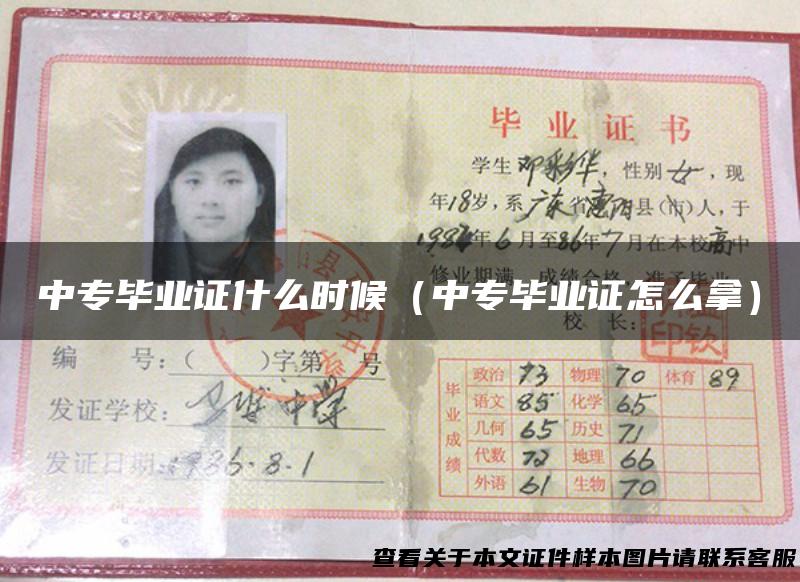 毕业证书
学生邓彩华，性别女，现
年18岁，系广东省惠阳县(市)人，于
年6月至86年7月在本校高中
修业期满，成绩合格，准予毕业
中专毕业证什么时候（中专毕业证怎么拿）
校 长：
编 号：（ ）字第 号
发证学校：
发证日期：1986.8.1
毕业成绩
政治 73 物理 70 体育 89
语文 85 化学 65
几何 65 历史 71
代数 72 地理 66
外语 61 生物 70
查看关于本文证件样本图片请联系客服